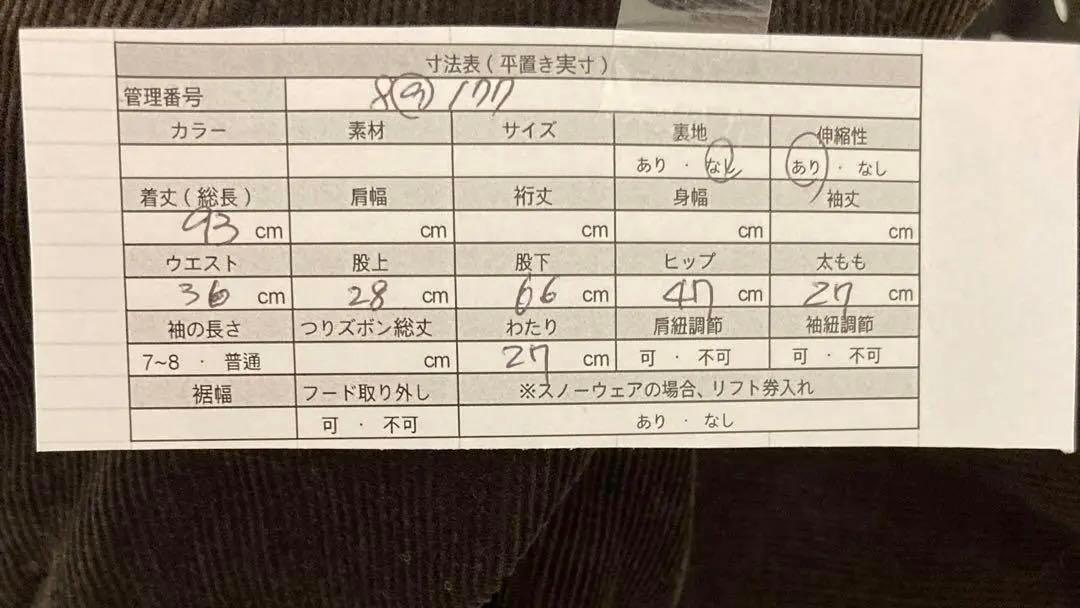 寸法表(平置き実寸)
管理番号 177
カラー 素材 サイズ 裏地 伸縮性
あり ・ なし あり ・ なし
着丈(総長) 肩幅 裄丈 身幅 袖丈
93 cm cm cm cm cm
ウエスト 股上 股下 ヒップ 太もも
36 cm 28 cm 66 cm 47 cm 27 cm
袖の長さ つりズボン総丈 わたり 肩紐調節 袖紐調節
7~8 ・ 普通 cm 27 cm 可 ・ 不可 可 ・ 不可
裾幅 フード取り外し ※スノーウェアの場合、リフト券入れ
可 ・ 不可 あり ・ なし